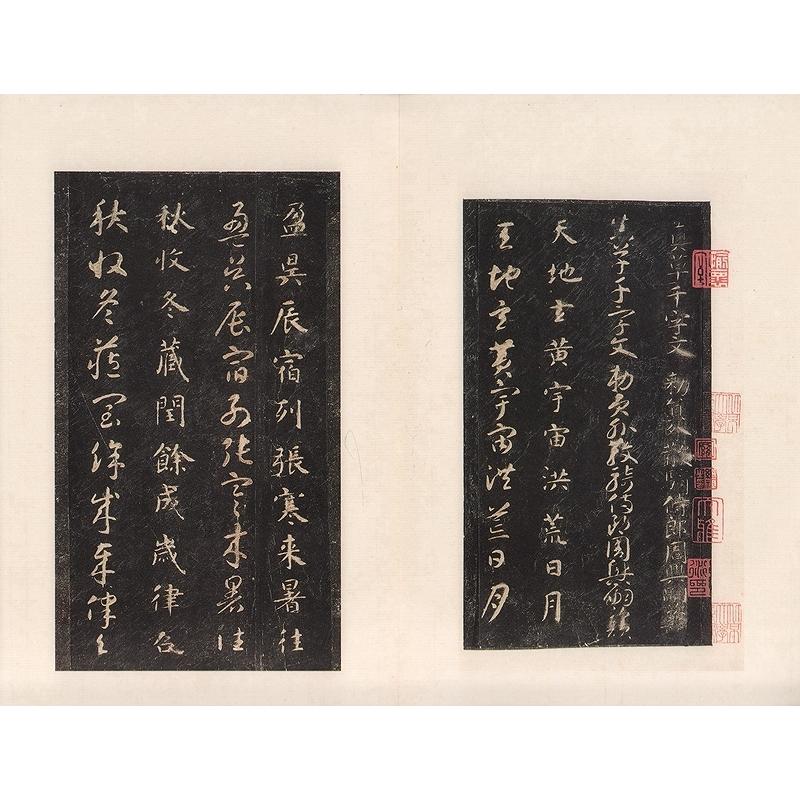 真草千字文 敕員外散騎侍郎周興嗣次韻
真草千字文 敕員外散騎侍郎周興嗣次韻
天地玄黃宇宙洪荒日月
天地玄黃宇宙洪荒日月
盈昃辰宿列張寒來暑往
盈昃辰宿列張寒來暑往
秋收冬藏閏餘成歲律呂
秋收冬藏閏餘成歲律呂